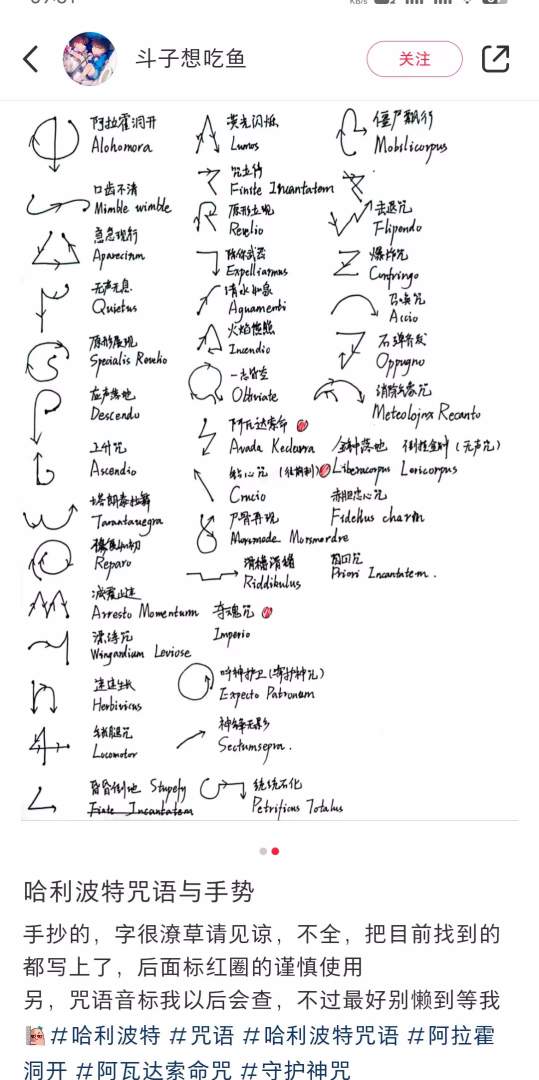 斗子想吃鱼
关注
阿拉霍洞开
Alohomora
口齿不清
Mimble wimble
急急现形
Aparecium
无声无息
Quietus
原形展现
Specialis Revelio
应声落地
Descendo
上升咒
Ascendio
塔朗泰拉舞
Tarantauegra
恢复如初
Reparo
减震止速
Arresto Momentum
漂浮咒
Wingardium Leviose
速速生长
Herbivicus
锁腿咒
Locomotor
昏昏倒地 Stupefy
Finite Incantatem
荧光闪烁
Lumos
咒立停
Finite Incantatem
原形立现
Revelio
除你武器
Expelliarmus
清水如泉
Aguamenti
火焰熊熊
Incendio
一忘皆空
Obliviate
阿瓦达索命
Avada Kedavra
钻心咒
Crucio
尸骨再现
Morsmode Morsmordre
滑稽滑稽
Riddikulus
夺魂咒
Imperio
呼神护卫(守护神咒)
Expecto Patronum
神锋无影
Sectumsepra.
统统石化
Petrificus Totalus
僵尸飘行
Mobilicorpus
击退咒
Flipendo
爆炸咒
Confringo
召唤咒
Accio
万弹齐发
Oppugno
消除气象咒
Meteolojinx Recanto
金钟落地 倒挂金钟(无声咒)
Liberacorpus Levicorpus
赤胆忠心咒
Fidelius charm
闪回咒
Priori Incantatem.
哈利波特咒语与手势
手抄的，字很潦草请见谅，不全，把目前找到的
都写上了，后面标红圈的谨慎使用
另，咒语音标我以后会查，不过最好别懒到等我
#哈利波特 #咒语 #哈利波特咒语 #阿拉霍
洞开 #阿瓦达索命咒 #守护神咒